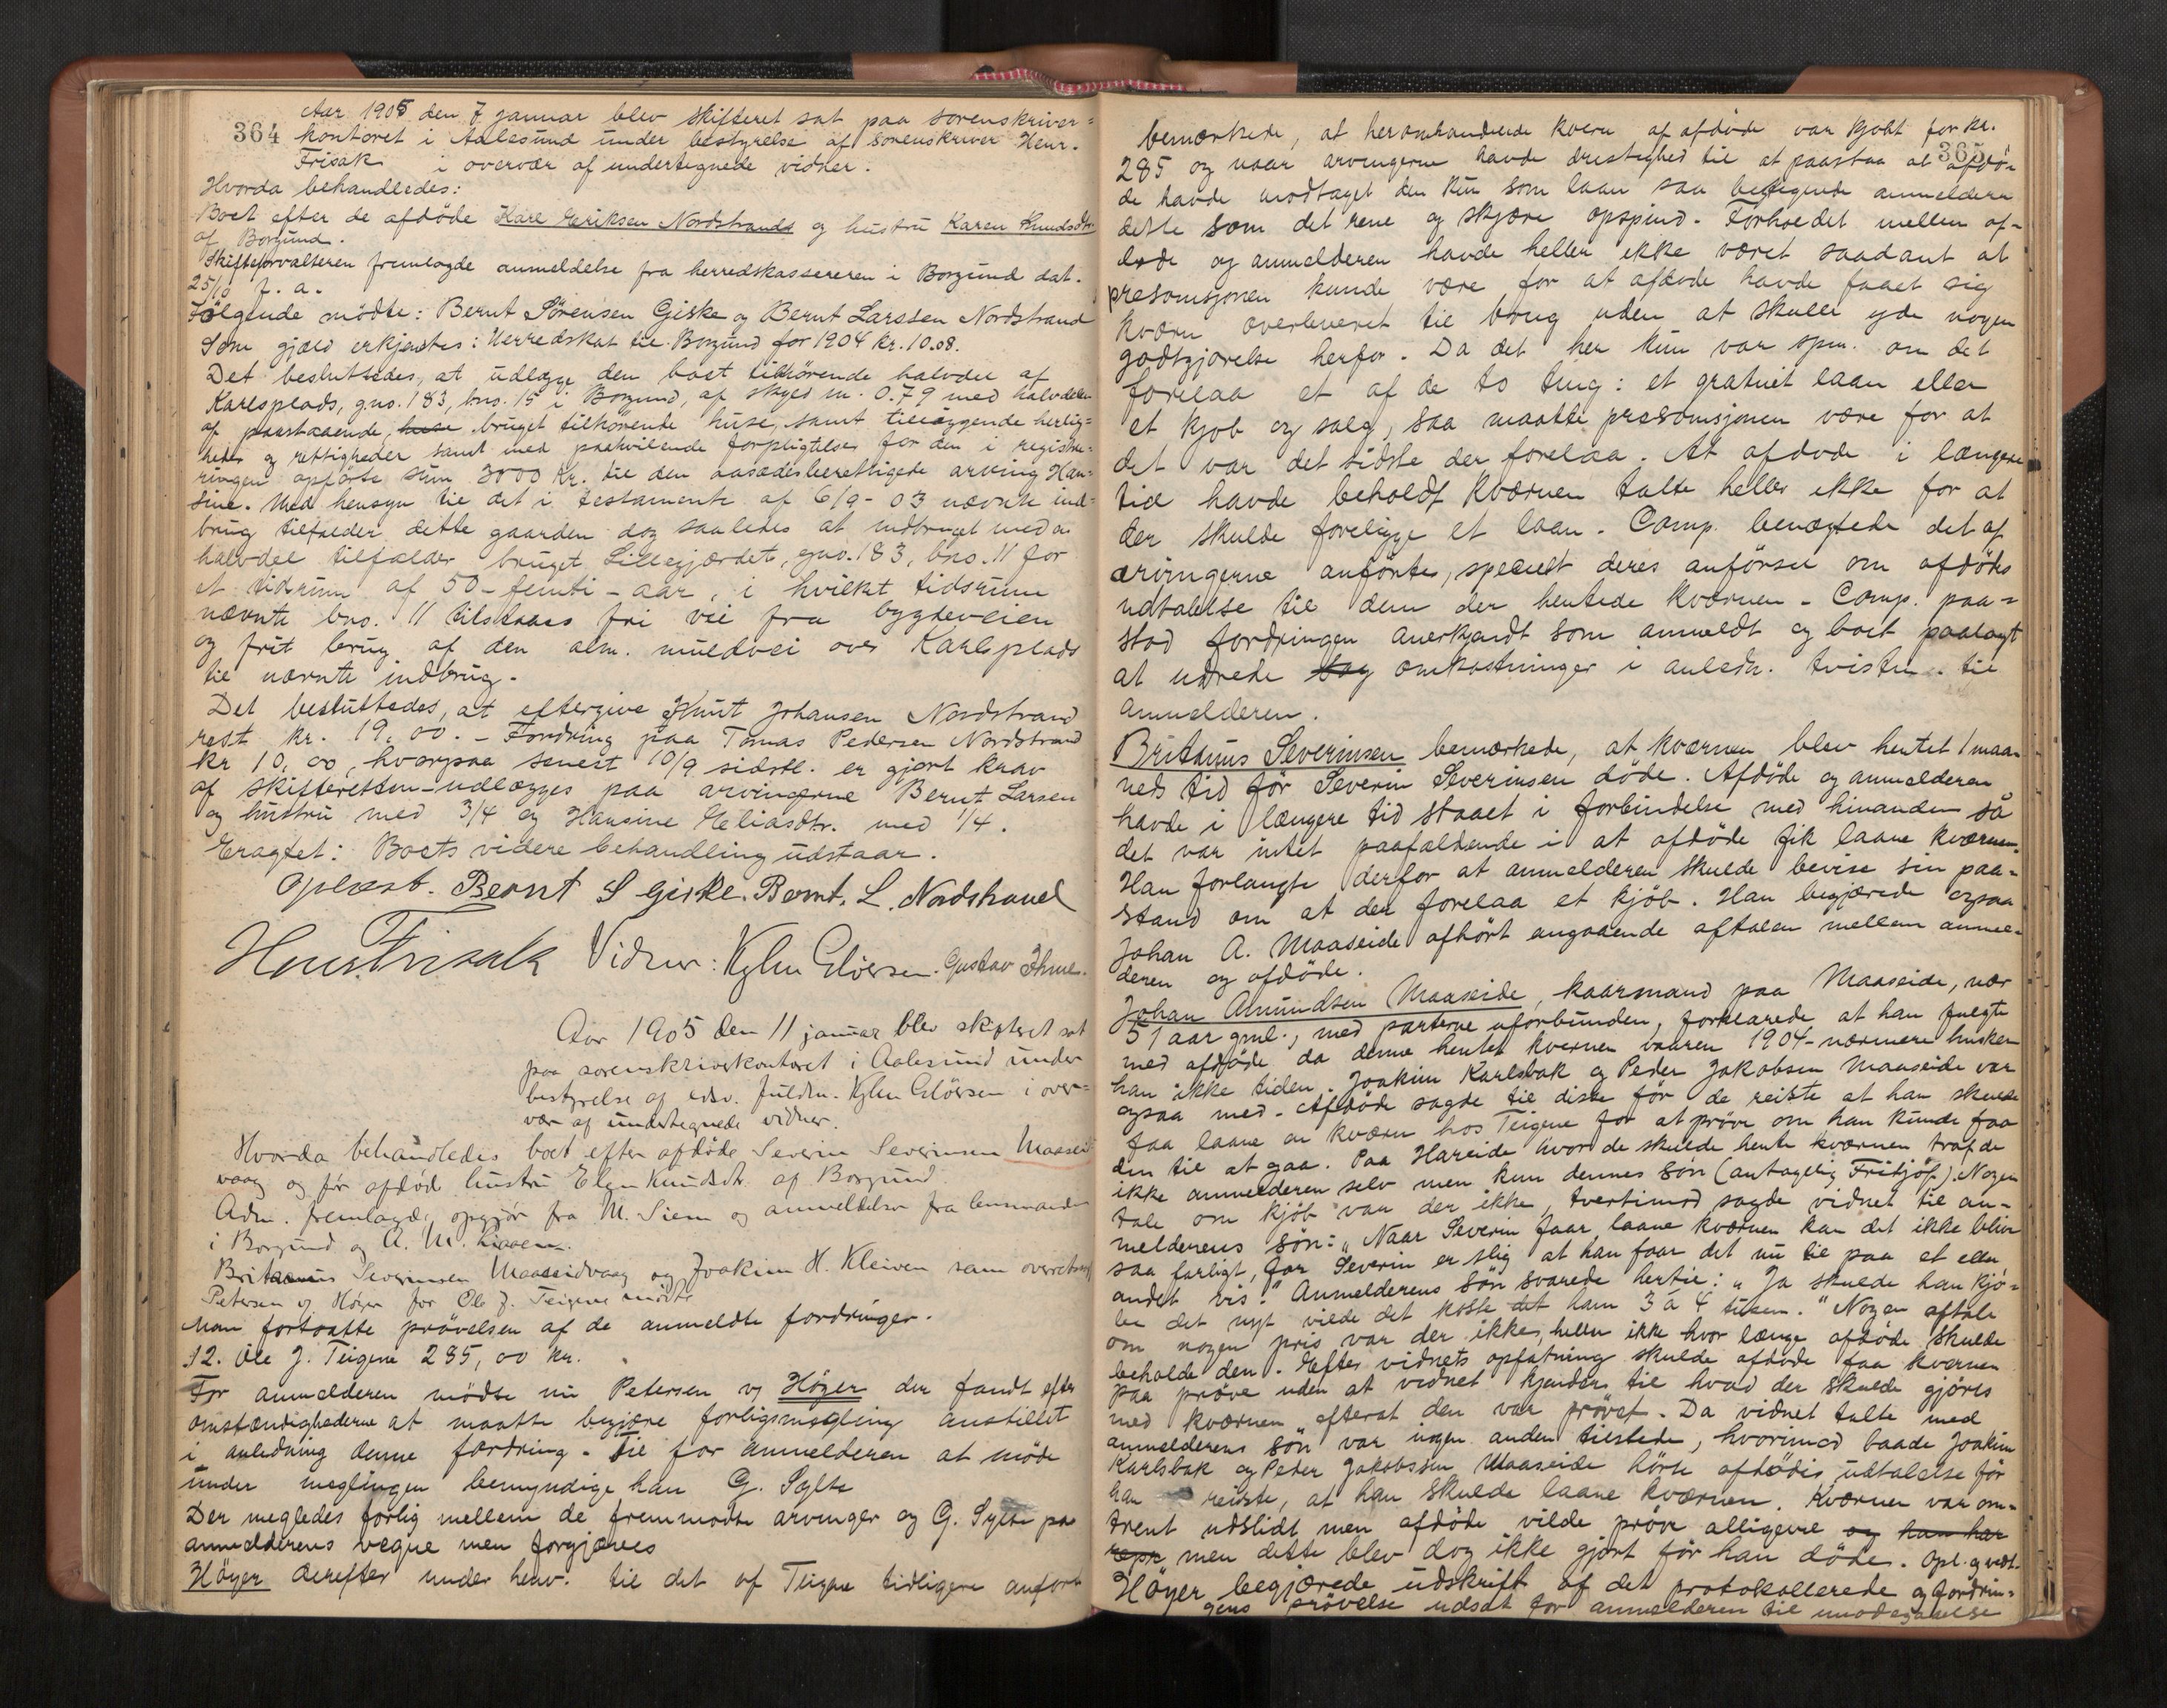 364
Aar 1905 den 7 januar blev skifteret sat paa sorenskriver=
kontoret i Aalesund under bestyrelse af sorenskriver Henr.
Frisak i overvær af undertegnede vidner.
Hvorda behandledes:
Boet efter de afdöde Karl Eriksen Nordstrand og hustru Karen Knudsdtr.
af Borgund.
Skifteforvalteren fremlagde anmeldelse fra herredskassereren i Borgund dat.
25/10 f. a.
Fölgende mödte: Bernt Sörensen Giske og Bernt Larssen Nordstrand
Som gjæld erkjentes: Herredskat til Borgund for 1904 kr. 10.08.
Det besluttedes, at udlægge den boet tilhörende halvdel af
Karlsplads, gno. 183, bno. 15 i Borgund, af skyld m. 0.79 med halvdelen
af paastaaende, huse bruget tilhörende huse, samt tilliggende herlig=
heder og rettigheder samt med paahvilende forpligtelser for den i registre=
ringen opförte sum 3000 Kr. til den aasædesberettigede arving Han=
sine. Med hensyn til det i testamente af 6/9-03 nævnte ind=
brug tilfalder dette gaarden dog saaledes at indbruget med en
halvdel tilfalder bruget Lillegjærdet, gno. 183, bno. 11 for
et tidsrum af 50-femti-aar, i hvilket tidsrum
nævnte bno. 11 tilstaaes fri vei fra bygdeveien
og frit brug af den alm. muldvei over Karlsplads
til nævnte indbrug.
Det besluttedes, at eftergive Knut Johansen Nordstrand
rest kr. 19.00. - Fordring paa Tomas Pedersen Nordstrand
kr 10,00, hvorpaa senest 10/9 sidstl. er gjort krav
af skifteretten-udlægges paa arvingerne Bernt Larsen
og hustru med 3/4 og Hansine Eliasdtr. med 1/4.
Eragtet: Boets videre behandling udstaar.
Oplæst. Bernt S Giske. Bernt. L. Nordstrand
Henr Frisak Vidner: Kyhn Glöersen. Gustav Thue.
Aar 1905 den 11 januar blev skifteret sat
paa sorenskriverkontoret i Aalesund under
bestyrelse af edsv. fuldm. Kyhn Glöersen i over=
vær af undertegnede vidner.
Hvorda behandledes boet efter afdöde Severin Severinsen Maaseid
vaag og för afdöde hustru Elen Knudsdtr. af Borgund.
Adm. fremlagde opgjör fra M. Siem og anmeldelser fra lensmanden
i Borgund og A. M. Liaaen.
Britanus Severinsen Maaseidvaag og Joakim H. Kleiven samt overretssagf
Petersen og Höyer for Ole J. Teigene mödte
Man fortsatte prövelsen af de anmeldte fordringer.
12. Ole J. Teigene 285,00 kr.
For anmelderen mödte nu Petersen og Höyer der fandt efter
omstændighederne at maatte begjære forligsmægling anstillet
i anledning denne fordring. Til for anmelderen at möde
under meglingen bemyndige han G. Sylte
Der megledes forlig mellem de fremmödte arvinger og G. Sylte paa
anmelderens vegne men forgjæves
Höyer derefter under henv. til det af Teigene tidligere anförte
365
bemærkede, at heromhandlede kværn af afdöde var kjöbt for kr.
285 og naar arvingerne havde dristighed til at paastaa at afdö-
de havde modtaget den kun som laan saa betegnede anmelderen
dette som det rene og skjære opspind. Forholdet mellem af-
döde og anmelderen havde heller ikke været saadant at
presomsjonen kunde være for at afdöde havde faaet sig
kværn overleveret til brug uden at skulle yde nogen
godtgjörelse herfor. Da det her kun var spm. om det
forelaa et af de to ting: et gratuit laan eller
et kjöb og salg, saa maatte presomsjonen være for at
det var det sidste der forelaa. At afdöde i længere
tid havde beholdt kværnen talte heller ikke for at
der skulde foreligge et laan. Comp. benægtede det af
arvingerne anförte, specielt deres anförsel om afdödes
udtalelse til dem der hentede kværnen. Comp. paa=
stod fordringen anerkjendt som anmeldt og boet paalagt
at udrede sag omkostninger i anledn. tvisten til
anmelderen.
Britanus Severinsen bemærkede, at kværnen blev hentet 1 maa=
neds tid för Severin Severinsen döde. Afdöde og anmelderen
havde i længere tid staaet i forbindelse med hinanden så
det var intet paafaldende i at afdöde fik laane kværnen.
Han forlangte derfor at anmelderen skulde bevise sin paa=
stand om at der forelaa et kjöb. Han begjærede ogsaa
Johan A. Maaseide afhört angaaende aftalen mellem anmel=
deren og afdöde.
Johan Amundsen Maaseide, kaarmand paa Maaseide, nær
51 aar gml., med parterne uforbunden, forklarede at han fulgte
med afdöde da denne hentet kvernen vaaren 1904-nærmere husker
han ikke tiden. Joakim Karlsbak og Peder Jakobsen Maaseide var
ogsaa med. Afdöde sagde til disse för de reiste at han skulde
faa laane en kværn hos Teigene for at pröve om han kunde faa
den til at gaa. Paa Hareide hvor de skulde hente kværnen traf de
ikke anmelderen selv men kun dennes sön (antagelig Fridtjof). Nogen
tale om kjöb var der ikke, tvertimod sagde vidnet til an-
melderens sön: "Naar Severin faar laane kværnen kan det ikke blive
saa farligt, for Severin er slig at han faar det nu til paa et eller
andet vis." Anmelderens sön svarede hertil: "Ja skulde han kjö=
be det nyt vilde det koste det ham 3 à 4 tusen." Nogen aftale
om nogen pris var der ikke, heller ikke hvor længe afdöde skulde
beholde den. Efter vidnets opfatning skulde afdöde faa kværnen
paa pröve uden at vidnet kjender til hvad der skulde gjöres
med kværnen efterat den var prövet. Da vidnet talte med
anmelderens sön var ingen anden tilstede, hvorimod baade Joakim
Karlsbak og Peder Jakobsen Maaseide hörte afdödes udtalelse för
han reiste, at han skulde laane kværnen. Kværnen var om=
trent udslidt men afdöde vilde pröve alligevel og han har
repr men dette blev dog ikke gjort för han döde. Opl. og vedt.
Höyer begjærede udskrift af det protokollerede og fordrin=
gens prövelse udsat for anmelderen til imödegaaelse